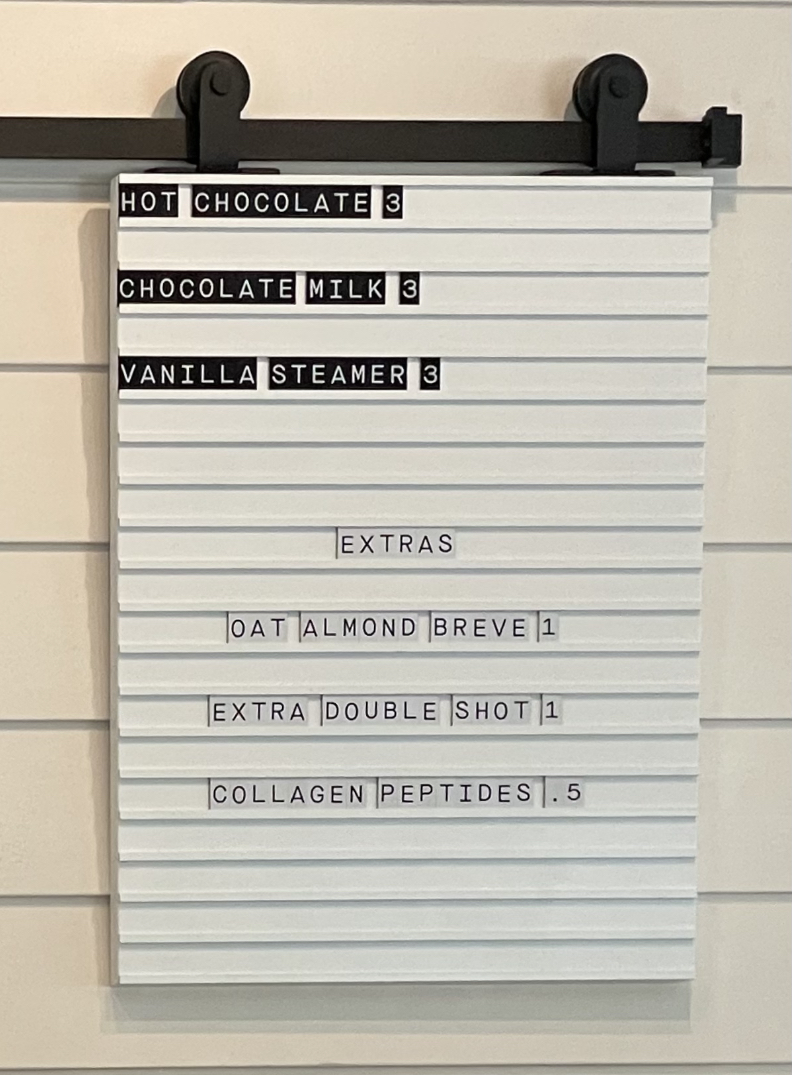 HOT CHOCOLATE 3
CHOCOLATE MILK 3
VANILLA STEAMER 3
EXTRAS
OAT ALMOND BREVE 1
EXTRA DOUBLE SHOT 1
COLLAGEN PEPTIDES .5